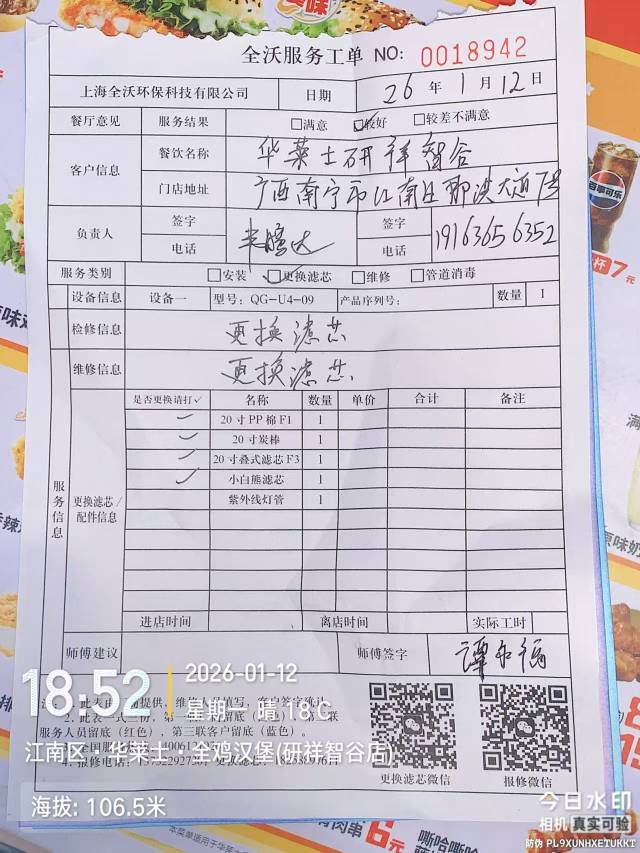 全沃服务工单 NO: 0018942
上海全沃环保科技有限公司 日期 26年1月12日
餐厅意见 服务结果 □满意 ☑较好 □较差不满意
客户信息 餐饮名称 华莱士研祥智谷
门店地址 广西南宁市江南区那洪大道7号
负责人 签字 签字
电话 电话 19163656352
服务类别 □安装 ☑更换滤芯 □维修 □管道消毒
设备信息 设备一 型号: QG-U4-09 产品序列号: 数量 1
检修信息 更换滤芯
维修信息 更换滤芯
服务信息
更换滤芯/配件信息
是否更换请打✓ 名称 数量 单价 合计 备注
✓ 20寸PP棉F1 1
✓ 20寸炭棒 1
✓ 20寸叠式滤芯F3 1
✓ 小白熊滤芯 1
紫外线灯管 1
进店时间 离店时间 实际工时
师傅建议 师傅签字 谭永福
18:52 2026-01-12
星期一 晴 18℃
江南区·华莱士·全鸡汉堡(研祥智谷店)
海拔: 106.5米
更换滤芯微信 报修微信
今日水印
相机 真实可验
防伪 PL9XUNHXETUKKT
百事可乐
杯7元
原味奶
6元